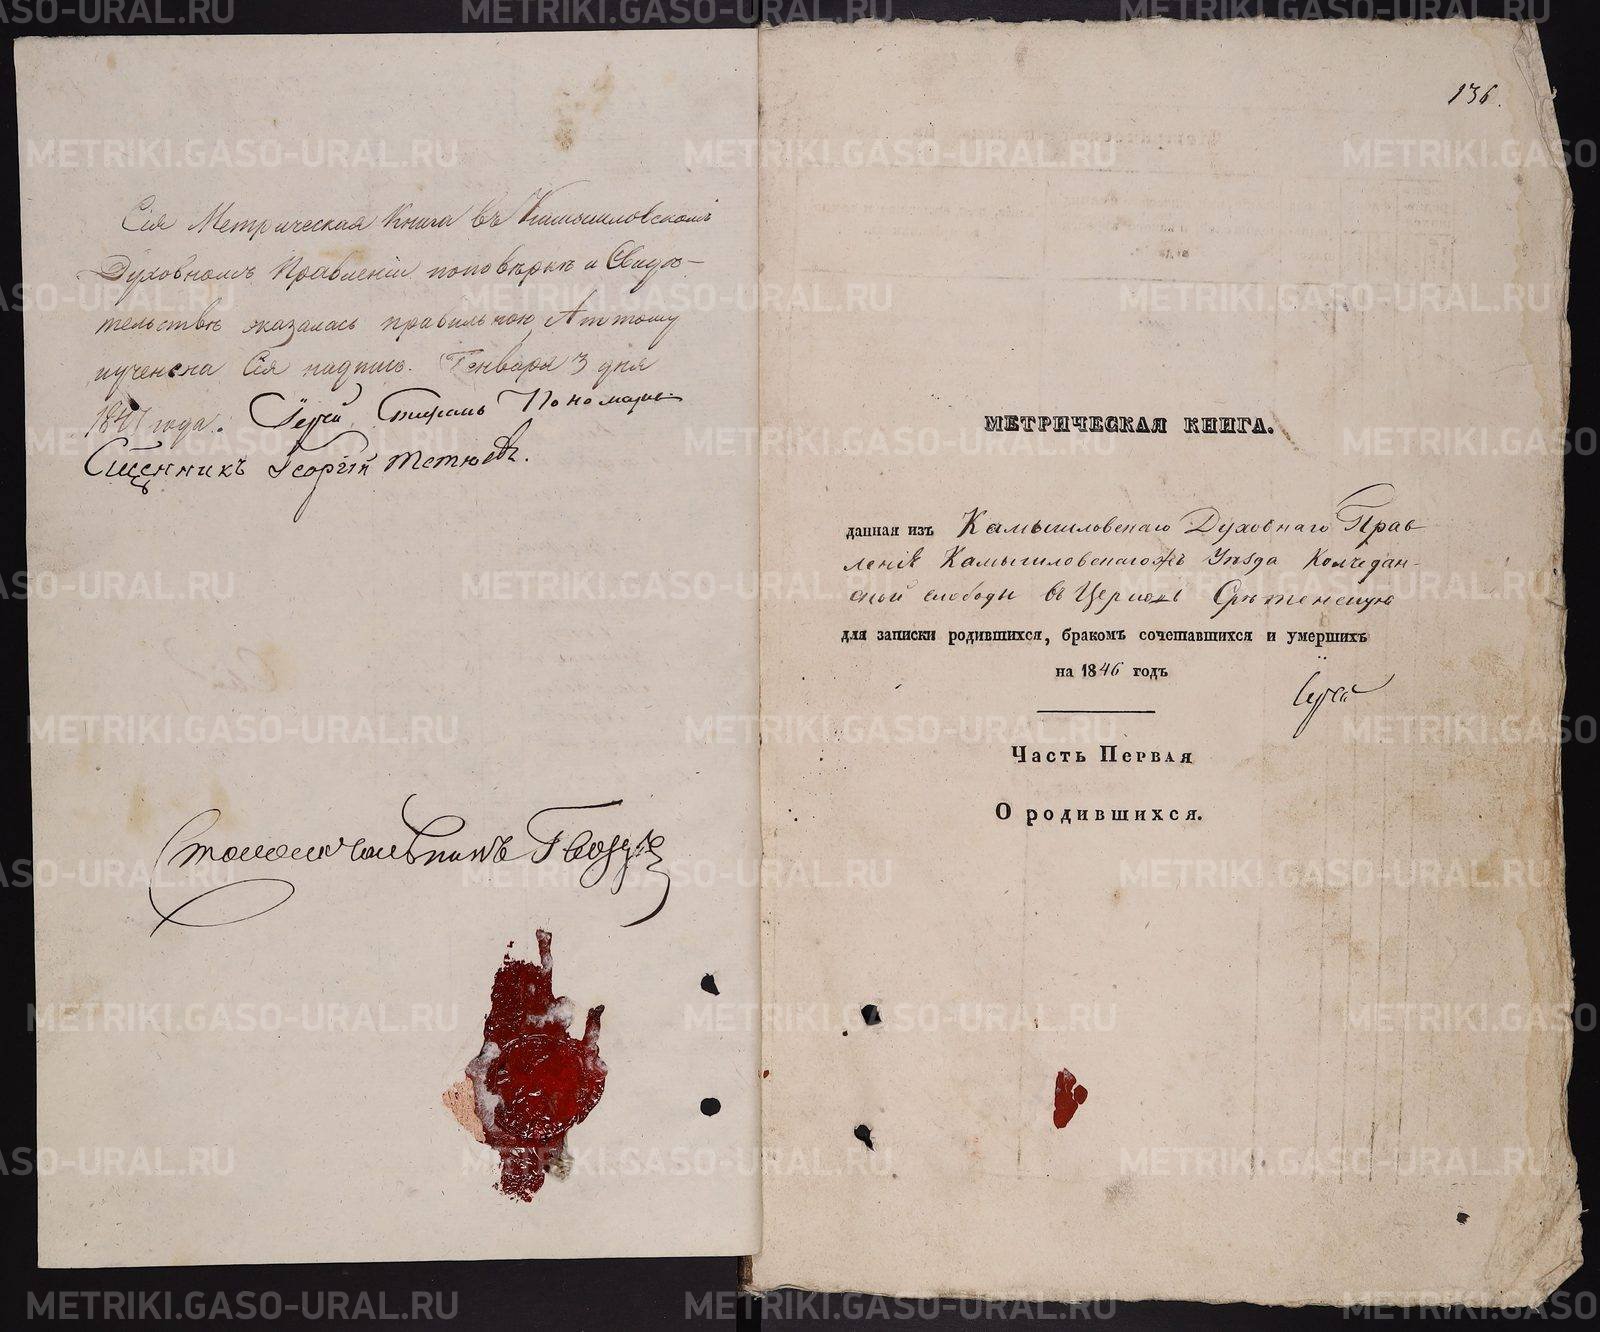 Сія Метрическая Книга въ Камышловскомъ
Духовномъ Правленіи поповѣркѣ и Свидѣ-
тельствѣ оказалась правильною, А потому
и учинена Сія надпись. Генваря 3 дня
1847 года. Іерей Стефанъ Пономаревъ
Сщенникъ Георгій Тетюевъ.
Столоначальникъ
136.
МЕТРИЧЕСКАЯ КНИГА.
данная изъ Камышловскаго Духовнаго Прав
ленія Камышловскагожъ Уѣзда Колчедан-
ской слободы въ Церковь Срѣтенскую
для записки родившихся, бракомъ сочетавшихся и умершихъ
на 1846 годъ
Іерей
Часть Первая
О родившихся.
METRIKI.GASO-URAL.RU